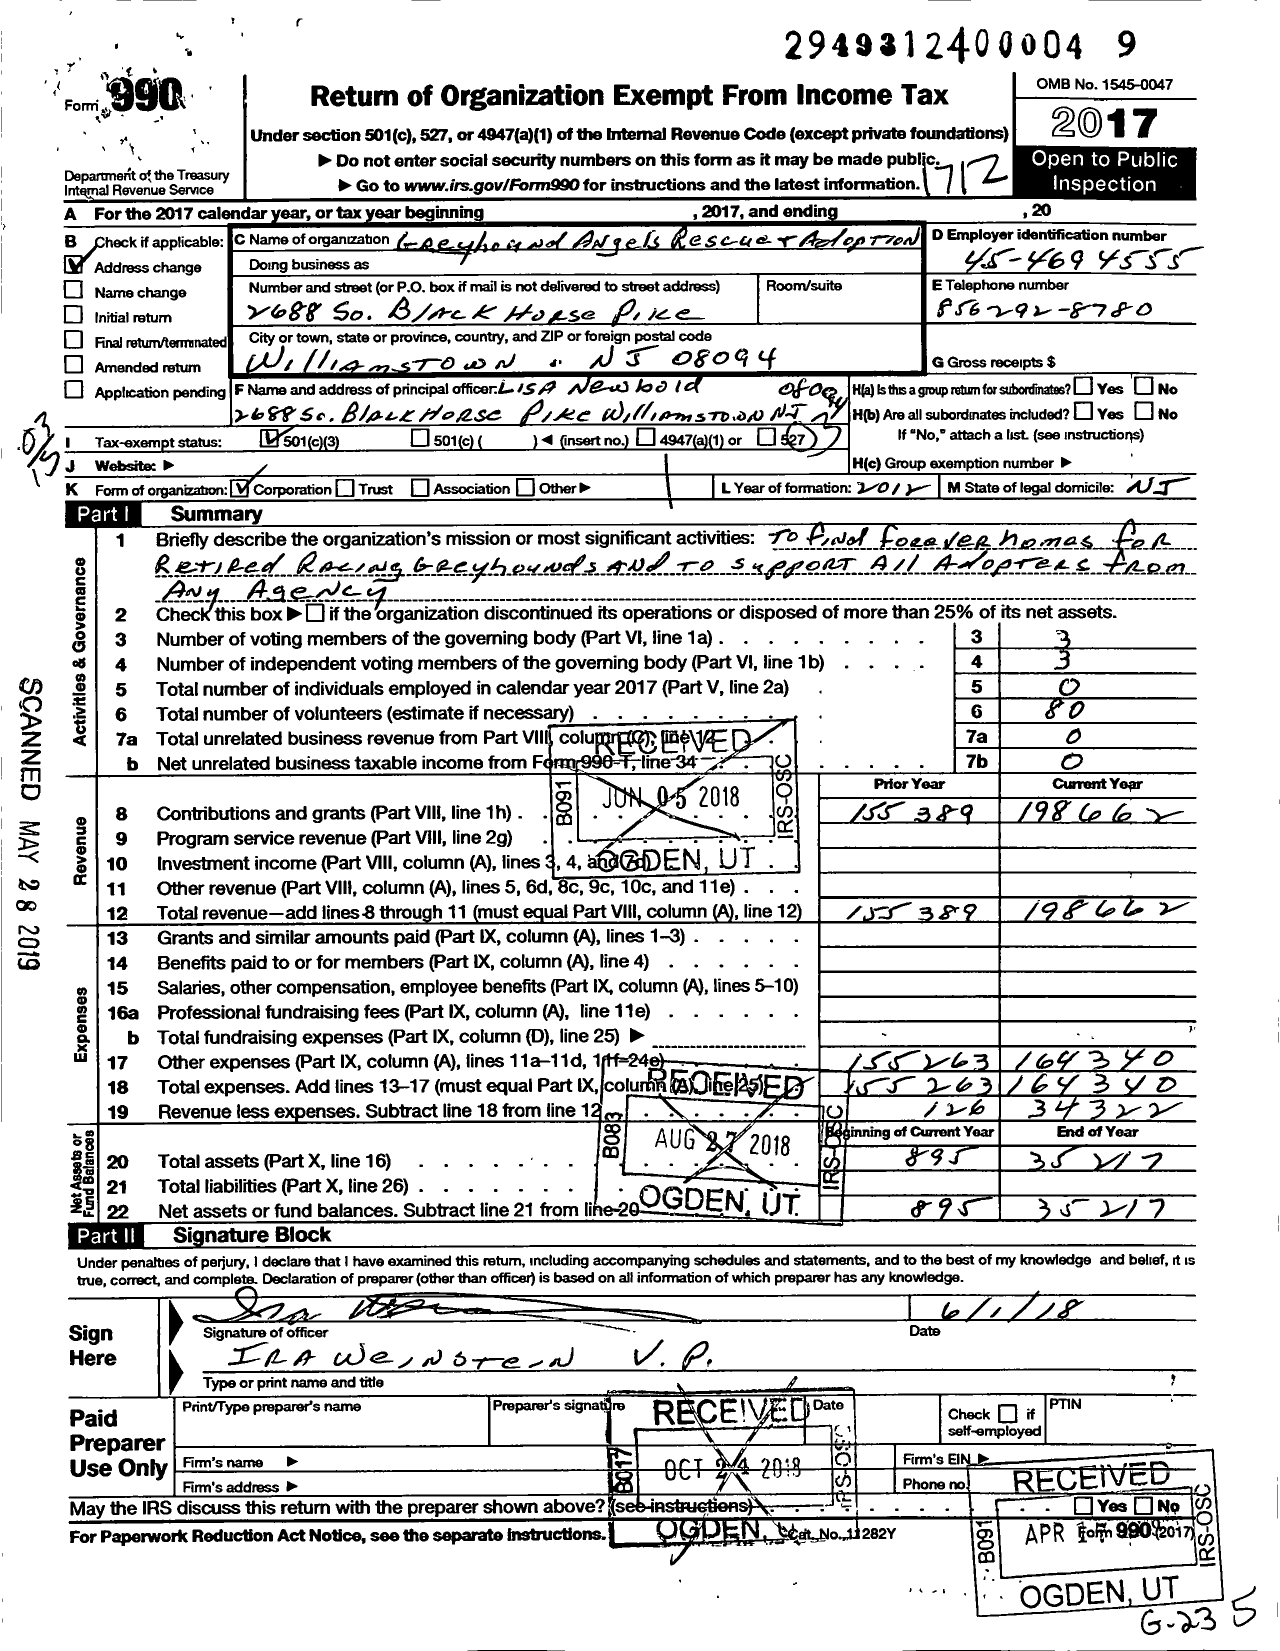 29493124000049
Form 990
Department of the Treasury
Internal Revenue Service
Return of Organization Exempt From Income Tax
Under section 501(c), 527, or 4947(a)(1) of the Internal Revenue Code (except private foundations)
▶ Do not enter social security numbers on this form as it may be made public.
▶ Go to www.irs.gov/Form990 for instructions and the latest information.
1712
OMB No. 1545-0047
2017
Open to Public
Inspection
A For the 2017 calendar year, or tax year beginning , 2017, and ending , 20
B Check if applicable:
Address change
Name change
Initial return
Final return/terminated
Amended return
Application pending
C Name of organization Greyhound Angels Rescue + Adoption
Doing business as
Number and street (or P.O. box if mail is not delivered to street address) Room/suite
2688 So. Black Horse Pike
City or town, state or province, country, and ZIP or foreign postal code
Williamstown NJ 08094
D Employer identification number
45-4694555
E Telephone number
856292-8780
G Gross receipts $
F Name and address of principal officer: Lisa Newbold
2688 So. Black Horse Pike Williamstown NJ 08094
H(a) Is this a group return for subordinates? Yes No
H(b) Are all subordinates included? Yes No
If "No," attach a list. (see instructions)
H(c) Group exemption number ▶
I Tax-exempt status: 501(c)(3) 501(c) ( ) ◀ (insert no.) 4947(a)(1) or 527
03
J Website: ▶
K Form of organization: Corporation Trust Association Other ▶
L Year of formation: 2012
M State of legal domicile: NJ
Part I Summary
Activities & Governance
1 Briefly describe the organization's mission or most significant activities: To find forever homes for
Retired Racing Greyhounds and to support all adopters from
Any Agency
2 Check this box ▶ if the organization discontinued its operations or disposed of more than 25% of its net assets.
3 Number of voting members of the governing body (Part VI, line 1a) 3 3
4 Number of independent voting members of the governing body (Part VI, line 1b) 4 3
5 Total number of individuals employed in calendar year 2017 (Part V, line 2a) 5 0
6 Total number of volunteers (estimate if necessary) 6 80
7a Total unrelated business revenue from Part VIII, column (C), line 12 7a 0
b Net unrelated business taxable income from Form 990-T, line 34 7b 0
Prior Year Current Year
Revenue
8 Contributions and grants (Part VIII, line 1h) 155 389 198662
9 Program service revenue (Part VIII, line 2g)
10 Investment income (Part VIII, column (A), lines 3, 4, and 7d)
11 Other revenue (Part VIII, column (A), lines 5, 6d, 8c, 9c, 10c, and 11e)
12 Total revenue—add lines 8 through 11 (must equal Part VIII, column (A), line 12) 155 389 198662
Expenses
13 Grants and similar amounts paid (Part IX, column (A), lines 1–3)
14 Benefits paid to or for members (Part IX, column (A), line 4)
15 Salaries, other compensation, employee benefits (Part IX, column (A), lines 5–10)
16a Professional fundraising fees (Part IX, column (A), line 11e)
b Total fundraising expenses (Part IX, column (D), line 25) ▶
17 Other expenses (Part IX, column (A), lines 11a–11d, 11f–24e) 155263 164340
18 Total expenses. Add lines 13–17 (must equal Part IX, column (A), line 25) 155263 164340
19 Revenue less expenses. Subtract line 18 from line 12 126 34322
Net Assets or
Fund Balances
Beginning of Current Year End of Year
20 Total assets (Part X, line 16) 895 35217
21 Total liabilities (Part X, line 26)
22 Net assets or fund balances. Subtract line 21 from line 20 895 35217
RECEIVED
B091
JUN 05 2018
IRS-OSC
OGDEN, UT
RECEIVED
B083
AUG 27 2018
IRS-OSC
OGDEN, UT.
SCANNED MAY 28 2019
Part II Signature Block
Under penalties of perjury, I declare that I have examined this return, including accompanying schedules and statements, and to the best of my knowledge and belief, it is
true, correct, and complete. Declaration of preparer (other than officer) is based on all information of which preparer has any knowledge.
Sign
Here
Signature of officer
6/1/18
Date
Ira Weinstein V.P.
Type or print name and title
Paid
Preparer
Use Only
Print/Type preparer's name
Preparer's signature
Date
Check if
self-employed
PTIN
Firm's name ▶
Firm's EIN ▶
Firm's address ▶
Phone no.
May the IRS discuss this return with the preparer shown above? (see instructions) Yes No
For Paperwork Reduction Act Notice, see the separate instructions.
Cat. No. 11282Y
Form 990 (2017)
RECEIVED
B017
OCT 24 2018
IRS-OSC
OGDEN,
RECEIVED
B091
APR
IRS-OSC
OGDEN, UT
G-23 5